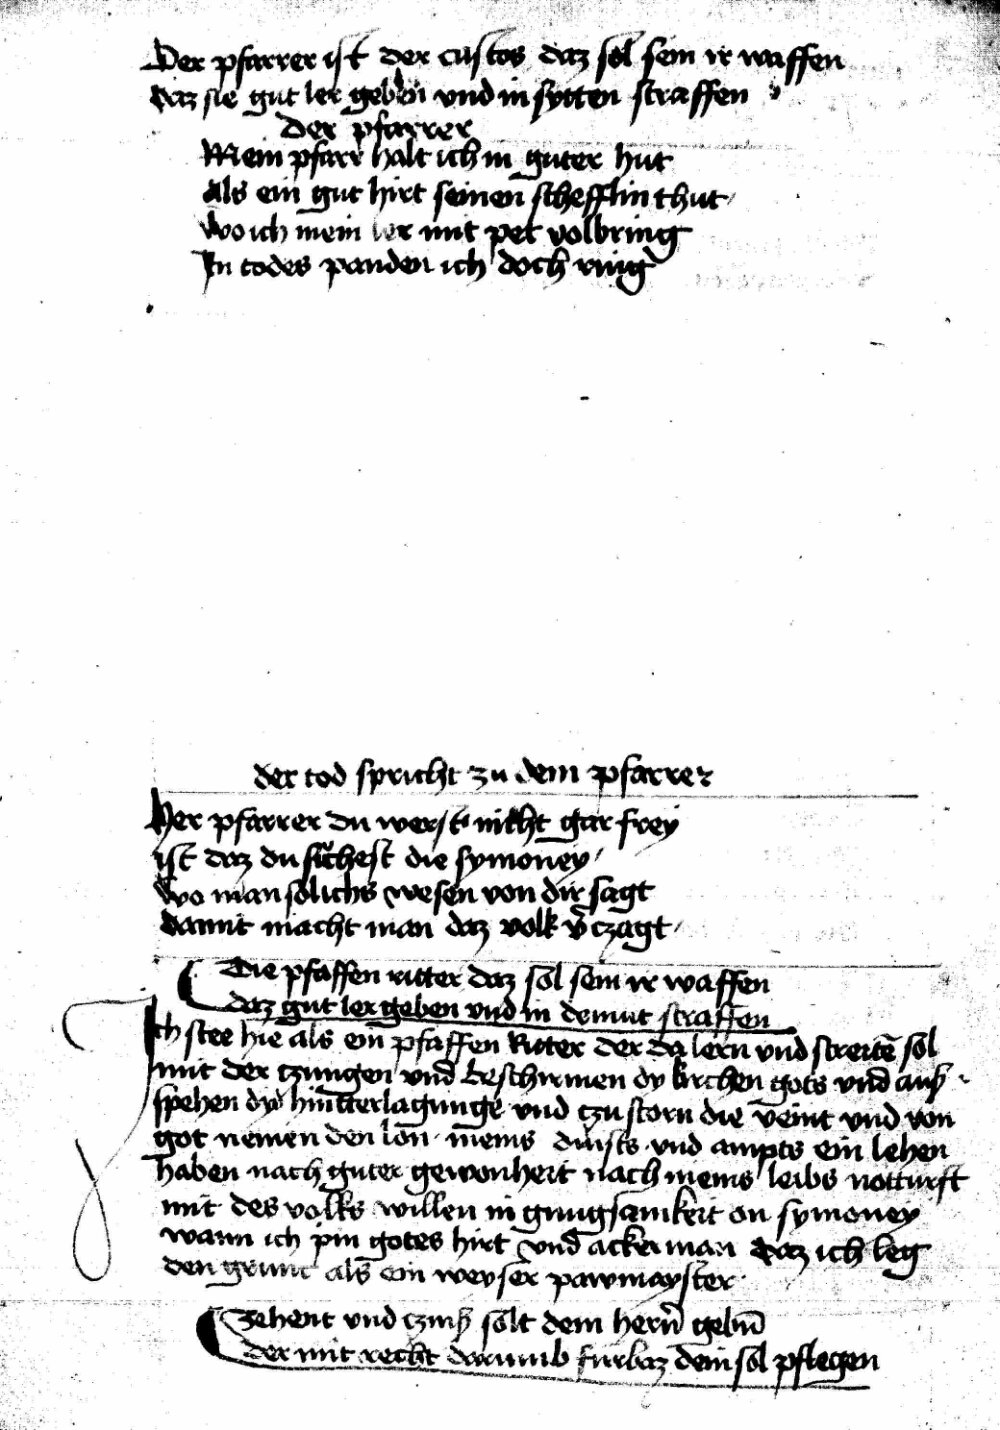 Der pfarrer ist der custos daz sol sein ir waffen
daz sie gut ler geben und in sytten straffen
Der pfarrer
Mein pfarr halt ich in guter hut
Als ein gut hirt seinen schefflin thut
Wo ich mein ler mit pet volbring
In todes panden ich doch ring
der tod spricht zu dem pfarrer
Her pfarrer du werst nicht gar frey
ist daz du suchest die symoney
Wo man solichs wesen von dir sagt
damit macht man daz volk v̄czagt
Die pfaffen ritter daz sol sein ir waffen
daz gut ler geben und in demut straffen
Ich stee hie als ein pfaffen Ritter der da lern und streitē sol
mit der czungen und beschirmen dy kirchen gots und auß
spehen dy hinterlagunge und czustorn die veint und von
got nemen den lon meins dinsts und ampts ein lehen
haben nach guter gewonheit nach meins leibs notturft
mit des volks willen in gnugsamkeit on symoney
wann ich pin gotes hirt und ackerman daz ich leg
den grunt als ein weyser pawmayster
Zehent und czinß solt dem hern̄ gebn̄
der mit recht darumb furbaz dein sol pflegen